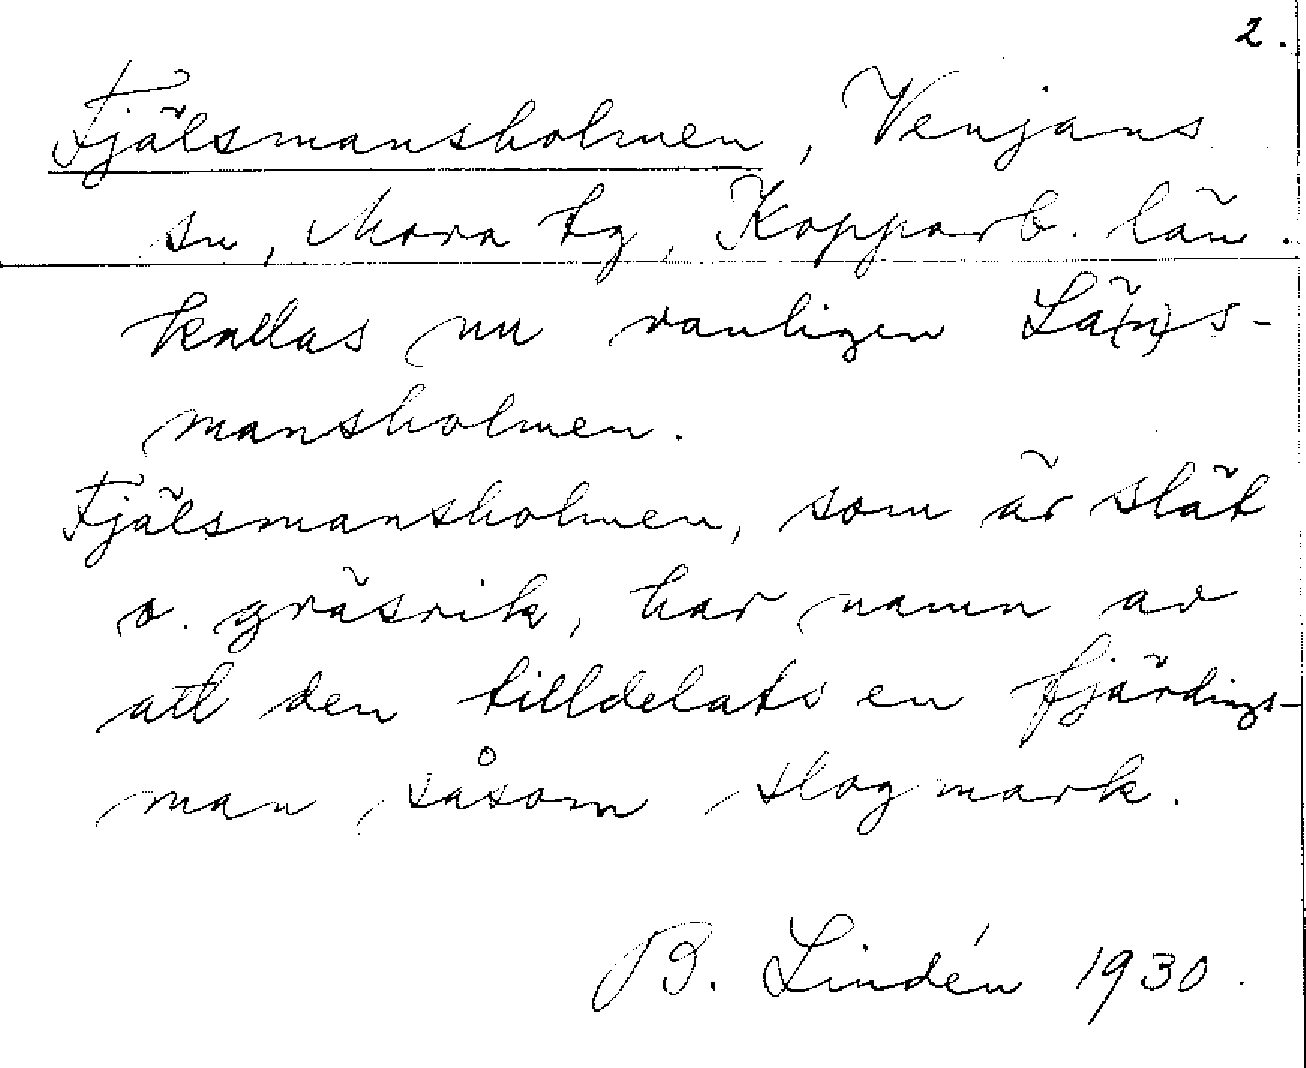 2.
Fjälsmansholmen, Venjans
sn, Mora tg, Kopparb. län.
kallas nu vanligen Lä(n)s-
mansholmen.
Fjälsmansholmen, som är slät
o. gräsrik, har namn av
att den tilldelats en fjärdings-
man såsom slogmark.
B. Lindén 1930.